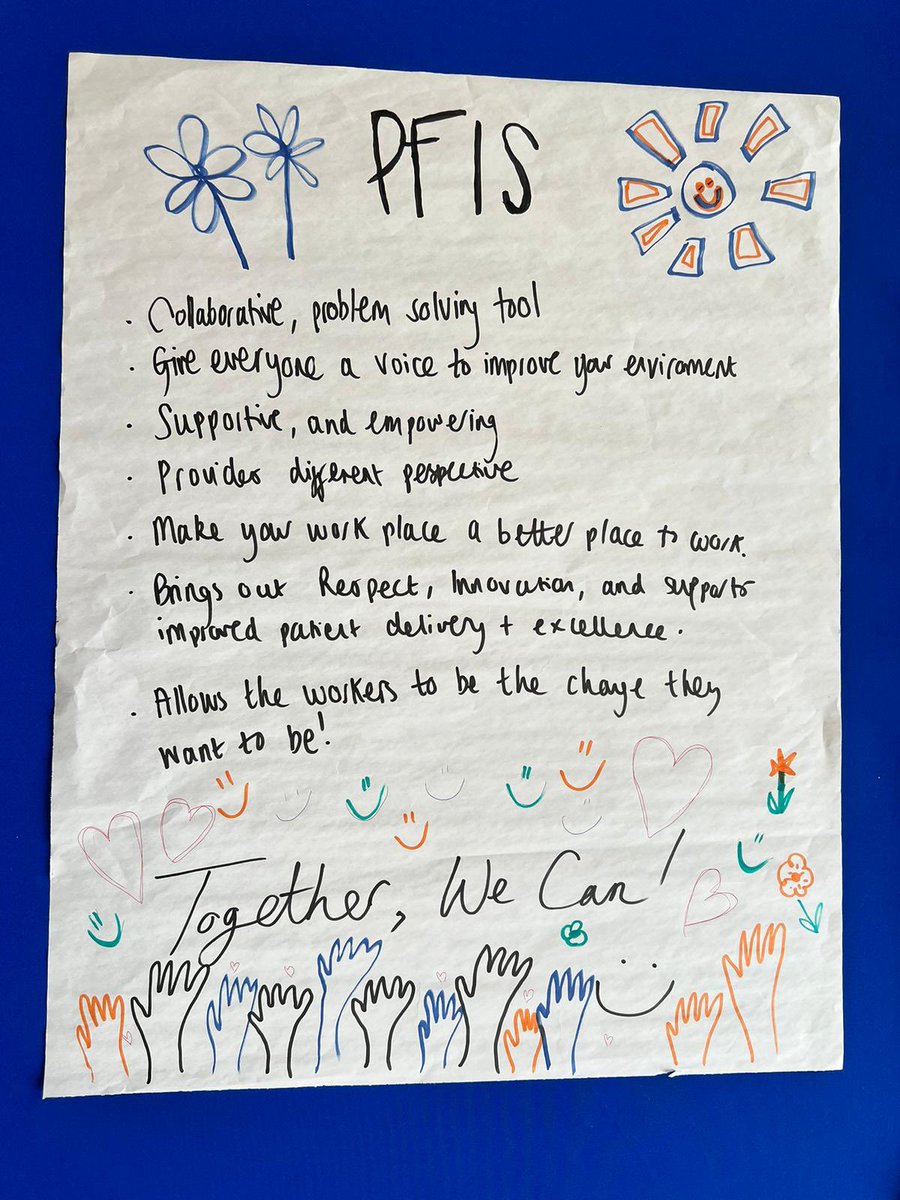 PFIS
· Collaborative, problem solving tool
· Give everyone a voice to improve your enviroment
· Supportive, and empowering
· Provides different perspective
· Make your work place a better place to work.
· Brings out Respect, Innovation, and supports
improved patient delivery + excellence.
· Allows the workers to be the change they
want to be!
Together, We Can!